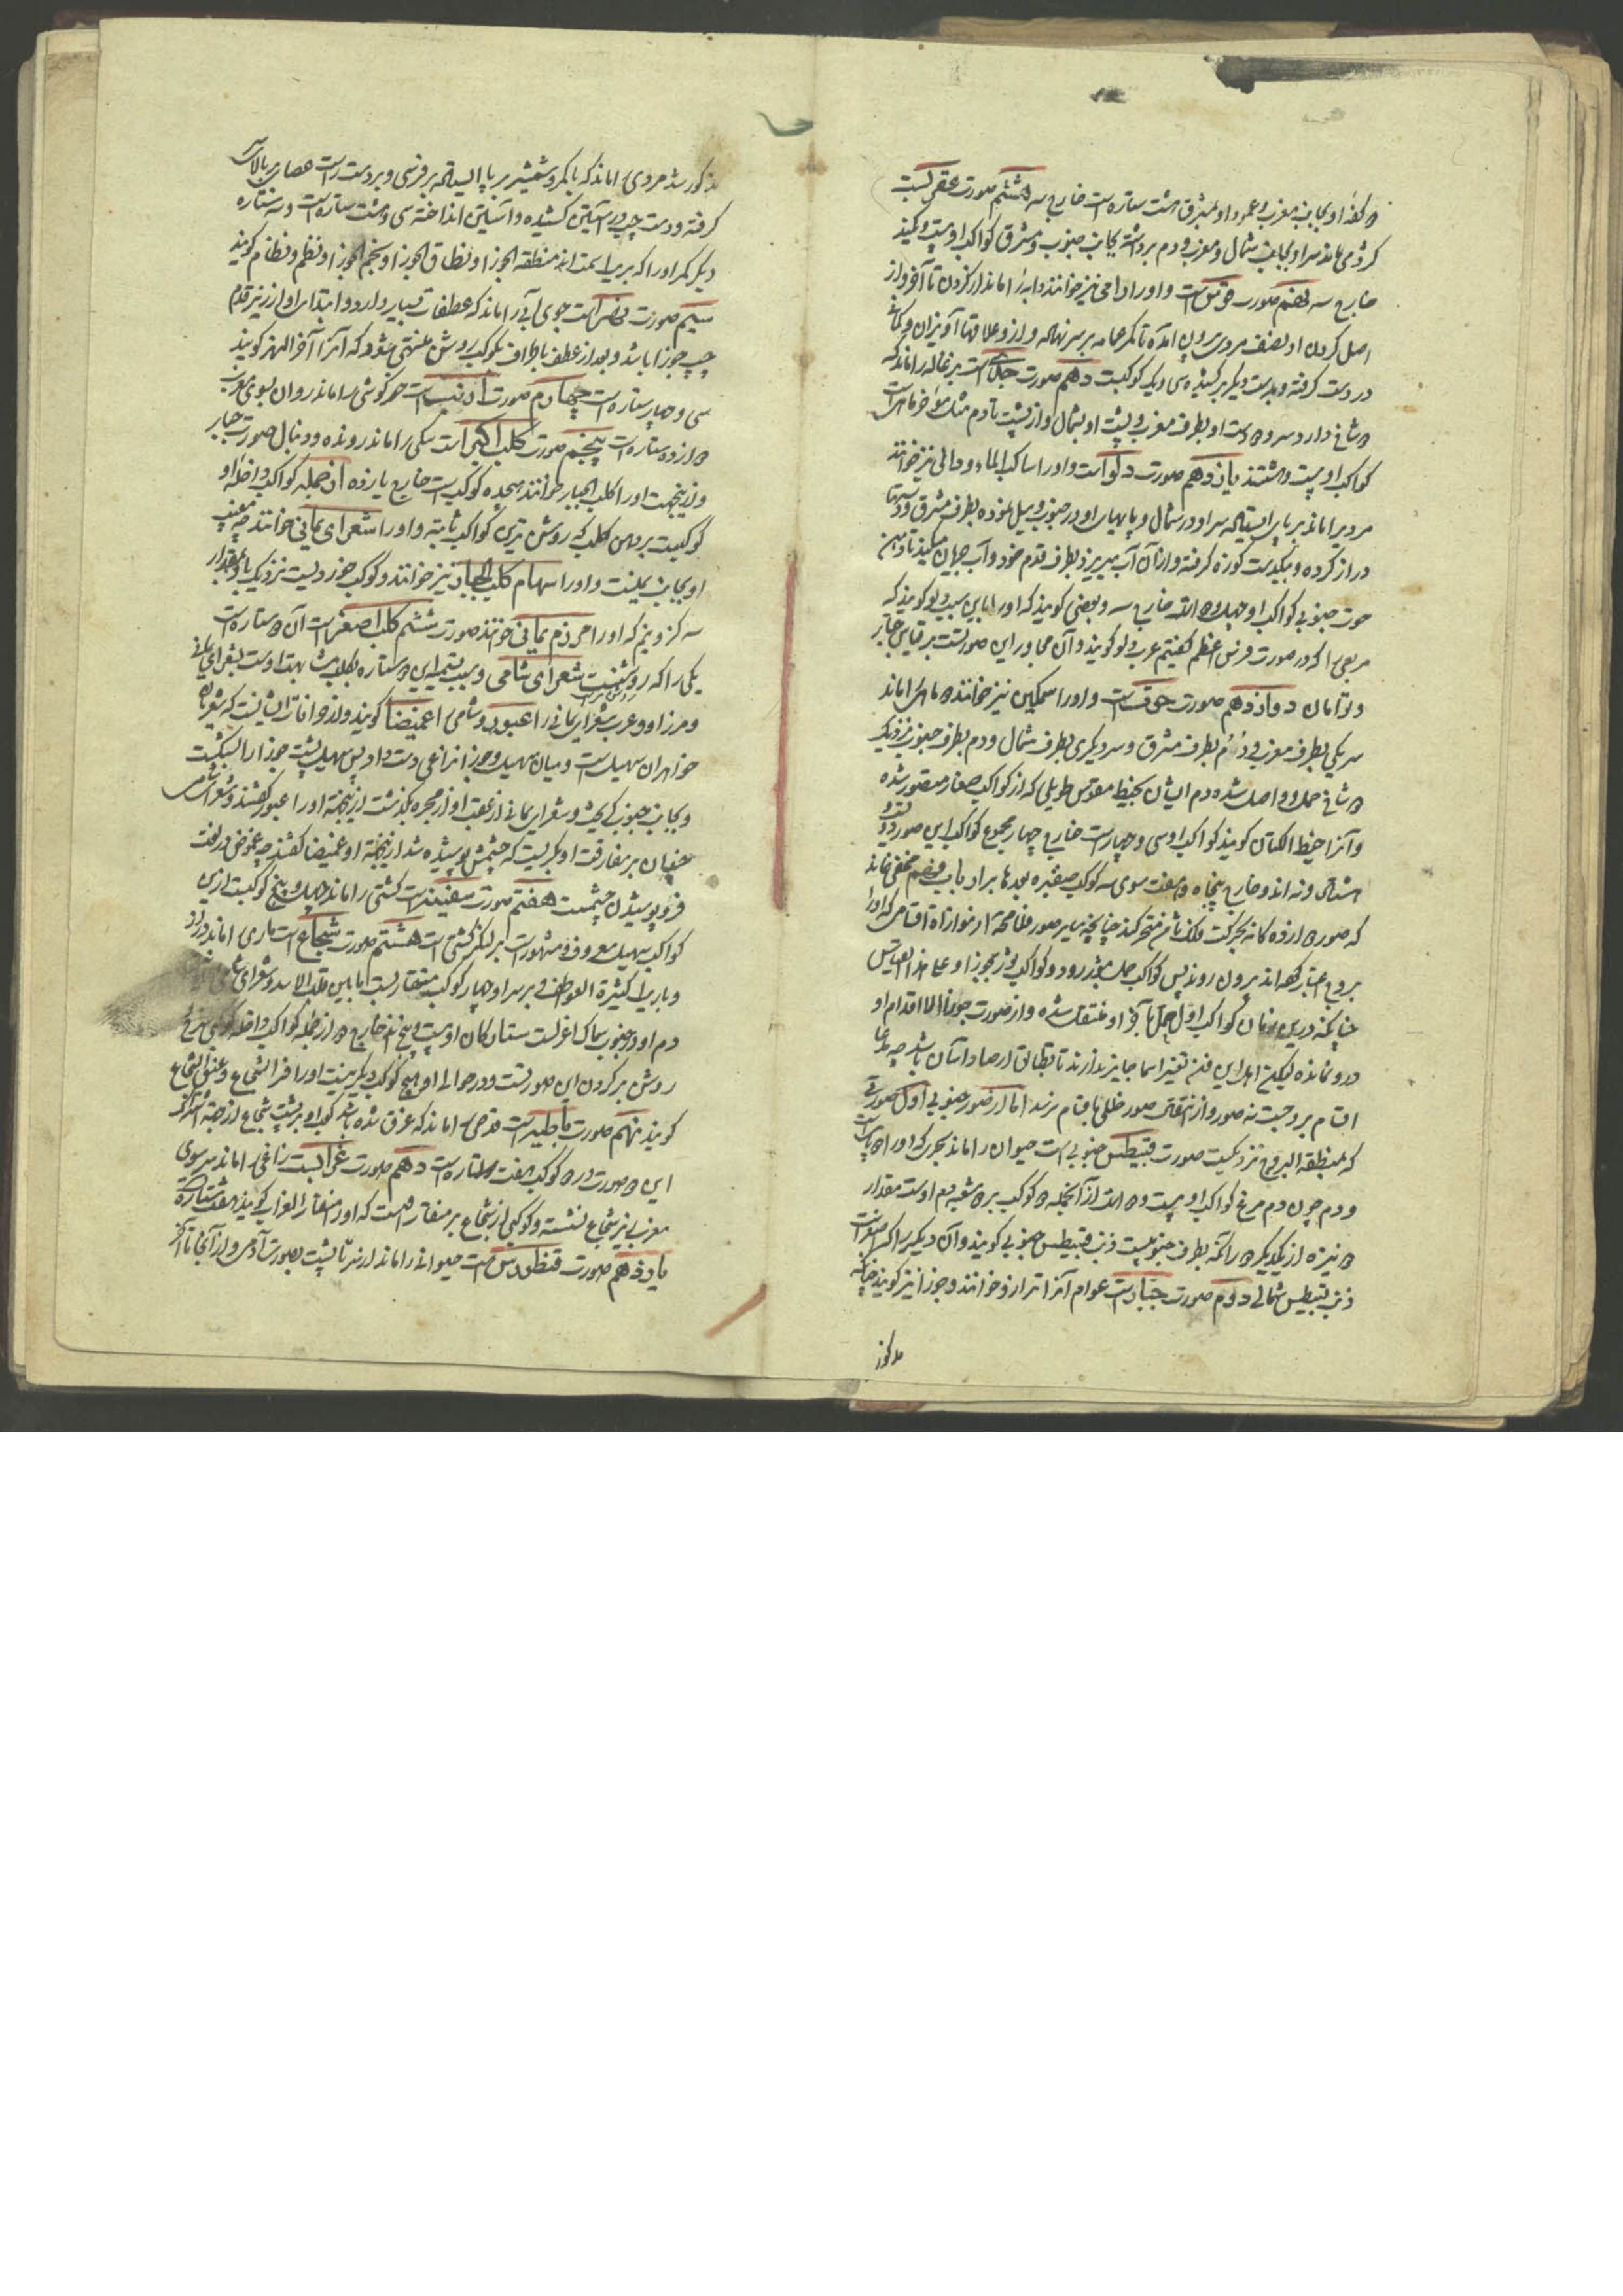 کفه او بجانب مغرب و عمود او بمشرق هشت ستاره است خارج سه هشتم صورت عقربست
کژدمی ماند سر او بجانب شمال و مغرب و دم برداشته بجانب جنوب و مشرق کواکب او بیست و یکند
خارج سه نهم صورت قوس است و او را رامی نیز خوانند دابه را ماند از کردن تا آخر و از
اصل کردن او نصف مردی برون آمده تا کمر عمامه بر سر نهاده و از و علاقها آویزان و کمانی
در دست کرفته و بدست دیکر بر کشیده سی و یک کوکبست دهم صورت جدی است بزغاله را ماند که
شاخ دارد سر و دست او بطرف مغرب و پشت او بشمال و از پشت تا دم مثل مؤخر ماهی است
کواکب او بیست و هشتند یازدهم صورت دلو است و او را ساکب الماء و دالی نیز خوانند
مردی را ماند بر پا ایستاده سر او در شمال و پایهای او در جنوب و میل نموده بطرف مشرق و دستها
دراز کرده و بیکدست کوزه کرفته و از آن آب میریزد بطرف قدم خود و آب جهان میکند تا دهن
حوت جنوبی کواکب او چهل و دو اند خارج سه و بعضی کویند که او را باین سبب دلو کویند که
مربعی را که در صورت فرس اعظم کفتیم عرب دلو کویند و آن مجاور این صورتست بر قیاس جبار
و توامان دوازدهم صورت حوت است و او را سمکین نیز خوانند دو ماهی را ماند
سر یکی بطرف مغرب و دم بطرف مشرق و سر دیکری بطرف شمال و دم بطرف جنوب نزدیک
شاخ حمل و واصل شده دم ایشان بخیط مقوس طویلی که از کواکب صغار متصور شده
و آنرا خیط الکتان کویند کواکب او سی و چهار است خارج چهار مجموع کواکب این صور دو
و نه اند و خارج پنجاه و هفت سوی سه کوکب صغیره بعدها بر ارباب فهم مخفی نماند
که صور دوازده کانه بحرکت فلک ثامن متحرکند چنانچه سایر صور فلا محاله از موازات اقسامی که او را
بروج اعتبار کرده اند برون روند پس کواکب حمل بثور رود و کواکب ثور بجوزا و علی هذا القیاس
چنانکه درین زمان کواکب اول حمل بآخر او منتقل شده و از صورت جوزا الا اقدام او
درو نمانده لیکن اهل این فن تغییر اسما جایز ندارند تا بطلانی ارصاد استان باشد چه مدعا
اقسام بروجست نه صور و از انتقال صور خللی باقسام نرسد اما از صور جنوبی اول صورتی
که بمنطقه البروج نزدیکست صورت قیطس جنوبی است حیوان را ماند بحری که او را دو پاست
و دم چون دم مرغ کواکب او بیست و دو اند از آنجمله دو کوکب بر دو شعبه دم اوست مقدار
نیزه از یکدیکر دو را که بطرف جنوبیست ذنب قیطس جنوبی کویند و آن دیکر را که اصغر است
ذنب قیطس شمالی دوم صورت جبار است عوام آنرا ترازو خوانند و جوزا نیز کویند چنانکه
مذکور
مذکور شد مردی را ماند که با کمر و شمشیر بر پا ایستاده بر فرسی و بر دست راست عصای بالای سر
کرفته و دست چپ در آستین کشیده و آستین انداخته سی و هشت ستاره است و سه ستاره
دیکر کمر او را که بر یک سمت اند منطقه الجوزا و نطاق الجوزا و نجم الجوزا و نظم و نظام کویند
سیم صورت نهر است جوی آبی را ماند که عطفات بسیار دارد و ابتدای او از زیر قدم
چپ جوزا باشد و بعد از عطف باطراف بکوکب روشن منتهی شود که آنرا آخر النهر کویند
سی و چهار ستاره است چهارم صورت ارنب است خرکوشی را ماند روان بسوی مغرب
دوازده ستاره است پنجم صورت کلب اکبر است سکی را ماند رونده و دنبال صورت جبار
و ازینجهت او را کلب الجبار خوانند هیجده کوکب است خارج یازده از جمله کواکب داخله او
کوکبیست بر دهن کلب که روشن ترین کواکب ثابته و او را شعرای یمانی خوانند چه مغیب
او بجانب یمنست و او را سهام کلب الجبار نیز خوانند و کوکب خوردیست نزدیک باو بمقدار
سه کز و نیم که او را مرزم یمانی خوانند صورت ششم کلب اصغر است آن دو ستاره است
یکی را که روشنست شعرای شامی و سبب تسمیه این دو ستاره بکلب مشابهت اوست بشعرای یمانی
و مرزم او و عرب شعرای یمانی را عبور و شامی را غمیصا کویند و از خرافات ایشانست که شعریان
خواهران سهیل است و میان سهیل و جوزا نزاعی دست داد پس سهیل پشت جوزا را شکست
و بجانب جنوب کریخت و شعرای یمانی از عقب او از مجره بکذشت ازینجهة او را عبور کفتند و شعرای شامی
چندان بر مفارقت او بکریست که چشمش پوشیده شد ازینجهة او را غمیصا کفتند چه غموض در لغت
فرو پوشیدن چشمست هفتم صورت سفینه است کشتی را ماند چهل و پنج کوکبست ازین
کواکب سهیل معروف و مشهور است بر لنکر کشتی است هشتم صورت شجاع است ماری را ماند دراز
و باریک کثیرة العواطف و بر سر او چهار کوکب متقاربست ما بین قلب الاسد و شعرای شامی
دم او در جنوب سماک اعزلست ستارکان او بیست و پنج اند خارج دو از جمله کواکب داخله کوکبی سرخ
روشن بر کردن این صورتست و در حوالی او هیچ کوکب دیکر نیست او را فرد الشجاع و عنق الشجاع
کویند نهم صورت باطیه است قدحی را ماند که غرق شده باشد کواکب او بر پشت شجاع از جهة اشتراک
این دو صورت در دو کوکب هفت ستاره است دهم صورت غرابست زاغی را ماند سر سوی
مغرب بر شجاع نشسته و کوکبی از شجاع بر منقار اوست که او را منقار الغراب کویند هفت ستاره است
یازدهم صورت قنطورس است حیوانی را ماند از سر تا پشت بصورت آدمی و از آنجا تا آخر